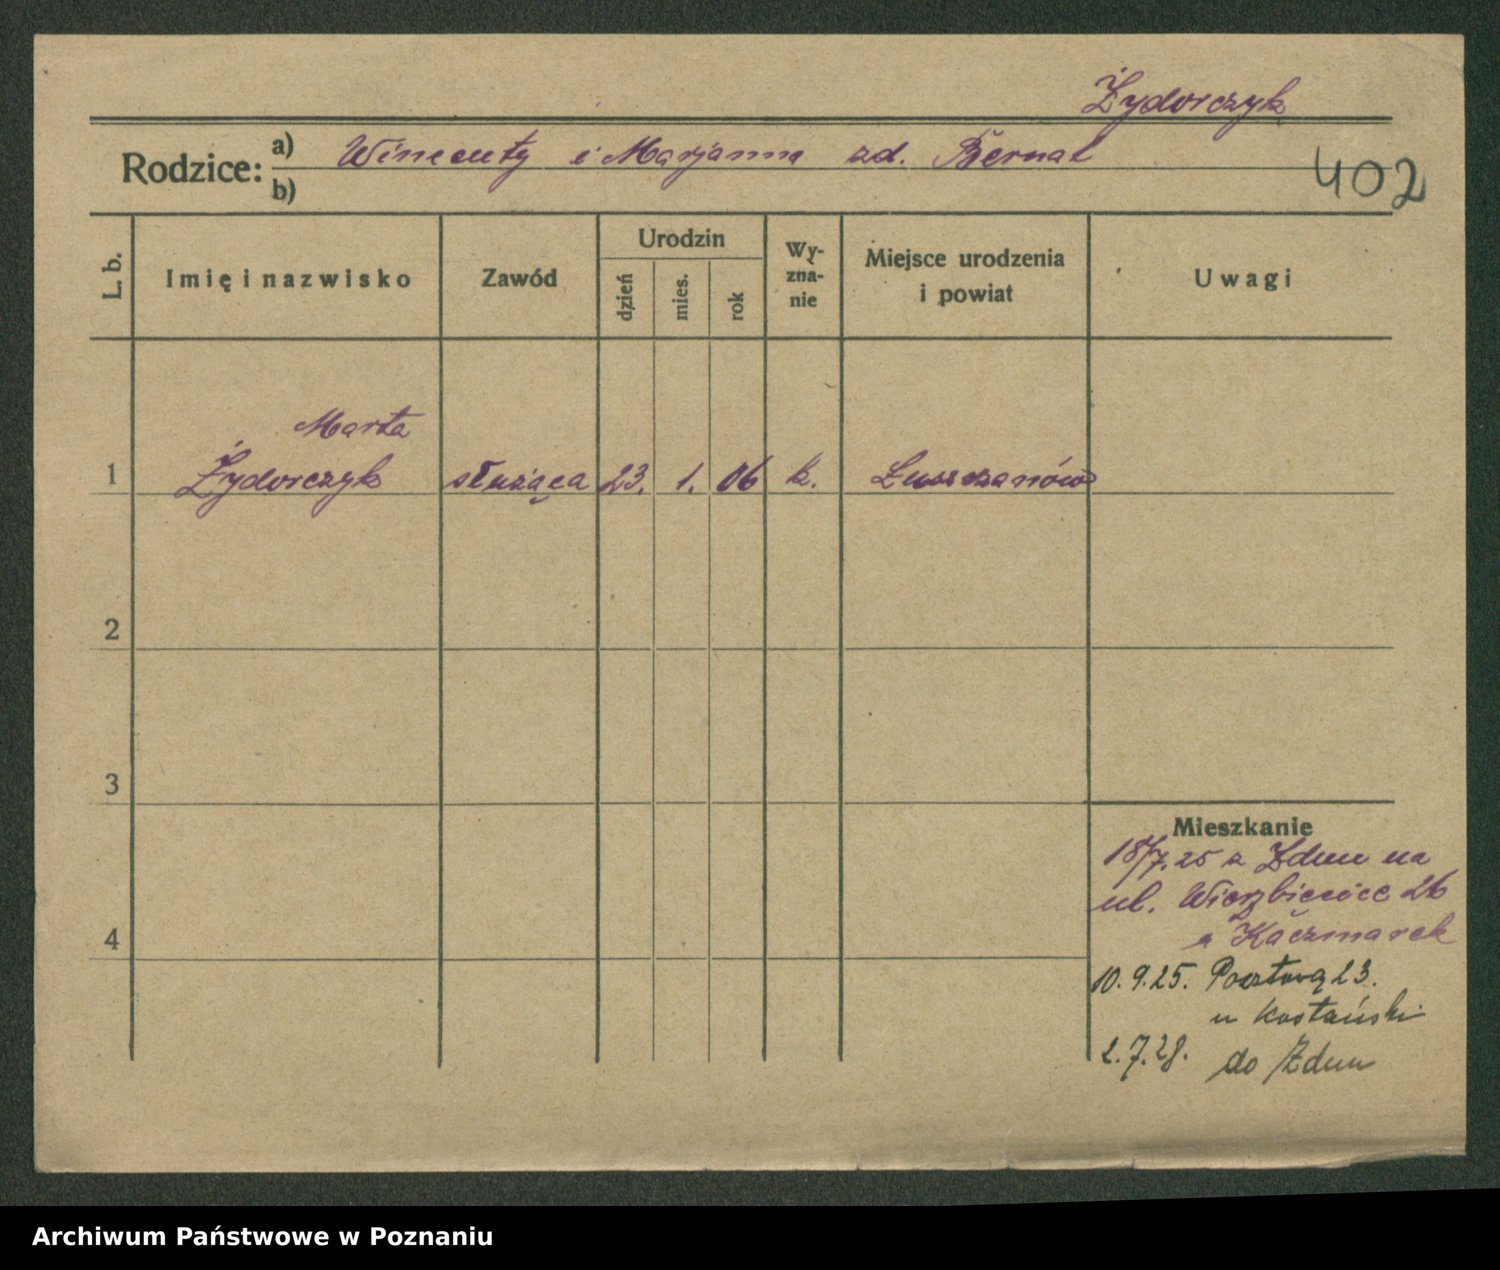 Żydorczyk
Rodzice: a) Wincenty i Marjanna zd. Bernat
b)
402
L. b.
Imię i nazwisko
Zawód
Urodzin
dzień
mies.
rok
Wy-
zna-
nie
Miejsce urodzenia
i powiat
Uwagi
Marta
1 Żydorczyk służąca 23. 1. 06 k. Łuszczanów
2
3
4
Mieszkanie
18/7.25 z Zdun na
ul. Wierzbięcice 26
u Kaczmarek
10.9.25. Pocztową 23.
u Kostański
2.7.28. do Zdun
Archiwum Państwowe w Poznaniu